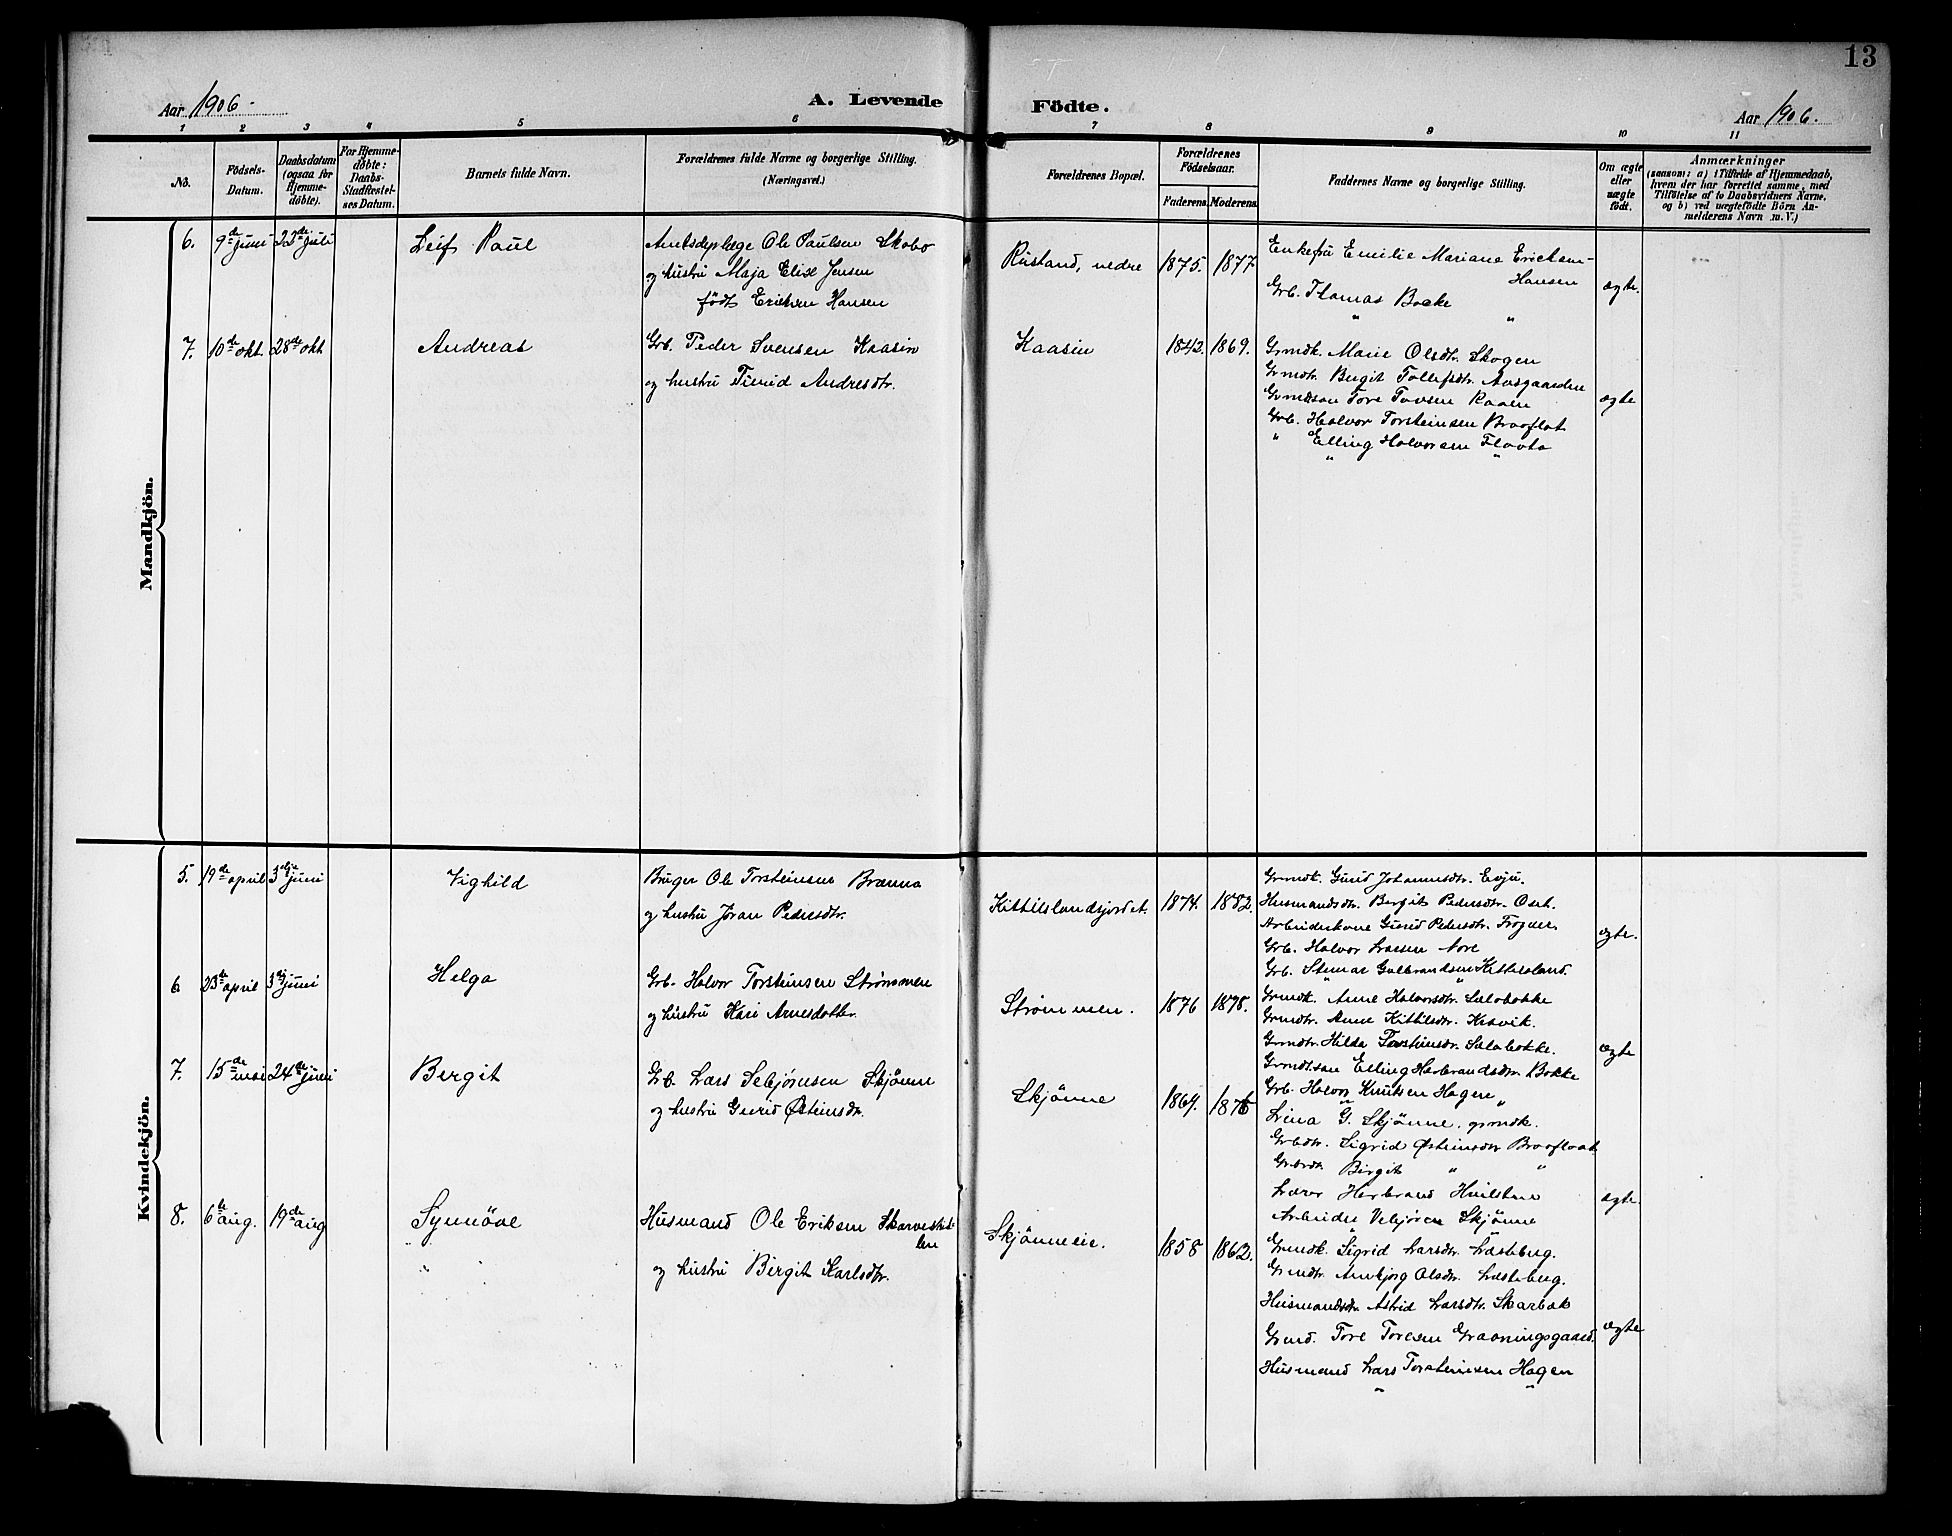 13
Aar 1906.
A. Levende Födte.
Aar 1906.
1 2 3 4 5 6 7 8 9 10 11
No.
Födsels-
Datum.
Daabsdatum
(ogsaa for
Hjemme-
döbte).
For Hjemme-
döbte:
Daabs-
Stadfæstel-
ses Datum.
Barnets fulde Navn.
Forældrenes fulde Navne og borgerlige Stilling.
(Næringsvei.)
Forældrenes Bopæl.
Forældrenes
Födselsaar.
Faderens. Moderens.
Faddernes Navne og borgerlige Stilling.
Om ægte
eller
uægte
födt.
Anmærkninger
(saasom: a) i Tilfælde af Hjemmedaab,
hvem der har forrettet samme, med
Tilföielse af to Daabsvidners Navne,
og b) ved uægtefödte Börn An-
melderens Navn m. V.)
Mandkjön.
6. 9de juni 22de juli Leif Paul
Amtsdyrlæge Ole Paulsen Skobo
og hustru Maja Elise Jensen
født Ericksen Hansen
Rustand, nedre 1875. 1877
Enkefru Emilie Mariane Ericksen-
Hansen
Grb. Thomas Bakke
" "
ægte.
7. 10de okt. 28de okt Andreas
Grb. Peder Svensen Kaasin
og hustru Turid Andresdtr.
Kaasin 1842. 1869.
Grmdk. Marie Olsdtr. Skogen
Grmdtr. Bergit Tollefsdtr. Aasgaarden
Grmdsøn Tore Tovsen Raaen
Grb. Halvor Torsteinsen Braaflat
" Elling Halvorsen Flovta
" "
ægte
Kvindekjön.
5. 19de april 3die juni Vighild
Bruger Ole Torsteinsen Brænna
og hustru Jøran Pedersdtr.
Kittilslandsjordet. 1874. 1882.
Grmdk. Gurid Johannesdtr. Evju.
Husmandsdtr. Bergit Pedersdtr. Øset.
Arbeiderkone Gurid Pedersdtr. Frogner
Grb. Halvor Larsen Nore
Grb. Steinar Gulbrandsen Kittilsland.
" "
ægte.
6 23de april 3die juni Helga
Grb. Halvor Torsteinsen Strømmen
og hustru Kari Arnesdatter.
Strømmen. 1876 1878.
Grmdk. Anne Halvorsdtr. Sælabakke
Grmdtr. Anne Kittilsdtr. Kravik.
Grmdtr. Hilda Torsteinsdtr. Sælabakke.
Grmdtsøn Elling Herbrandsdtr. Bakke
Grb. Halvor Knutsen Hagen
" "
ægte
7. 15de mai 24de juni Bergit
Grb. Lars Sebjørnsen Skjønne
og hustru Gurid Østeinsdtr.
Skjønne 1864. 1876
Lina G. Skjønne, grmdk.
Grbdtr. Sigrid Østeinsdtr Braaflaat
Grbdtr. Birgit " "
Lærer Herbrand Hvilstene
Arbeider Vebjørn Skjønne
" "
ægte.
8. 6te aug. 19de aug Synnöve
" "
Husmand Ole Eriksen Skarvestul-
len
og hustru Birgit Karlsdtr.
Skjønneeie. 1858 1862.
Grmdk. Sigrid Larsdtr. Læstebrg.
Grmdtr. Ambjørg Olsdtr. Læstebrg.
Husmandsdtr. Astrid Larsdtr. Skarbak
Grmd. Tore Toresen Graaningsgaard.
Husmand Lars Torsteinsen Hagen
" "
ægte